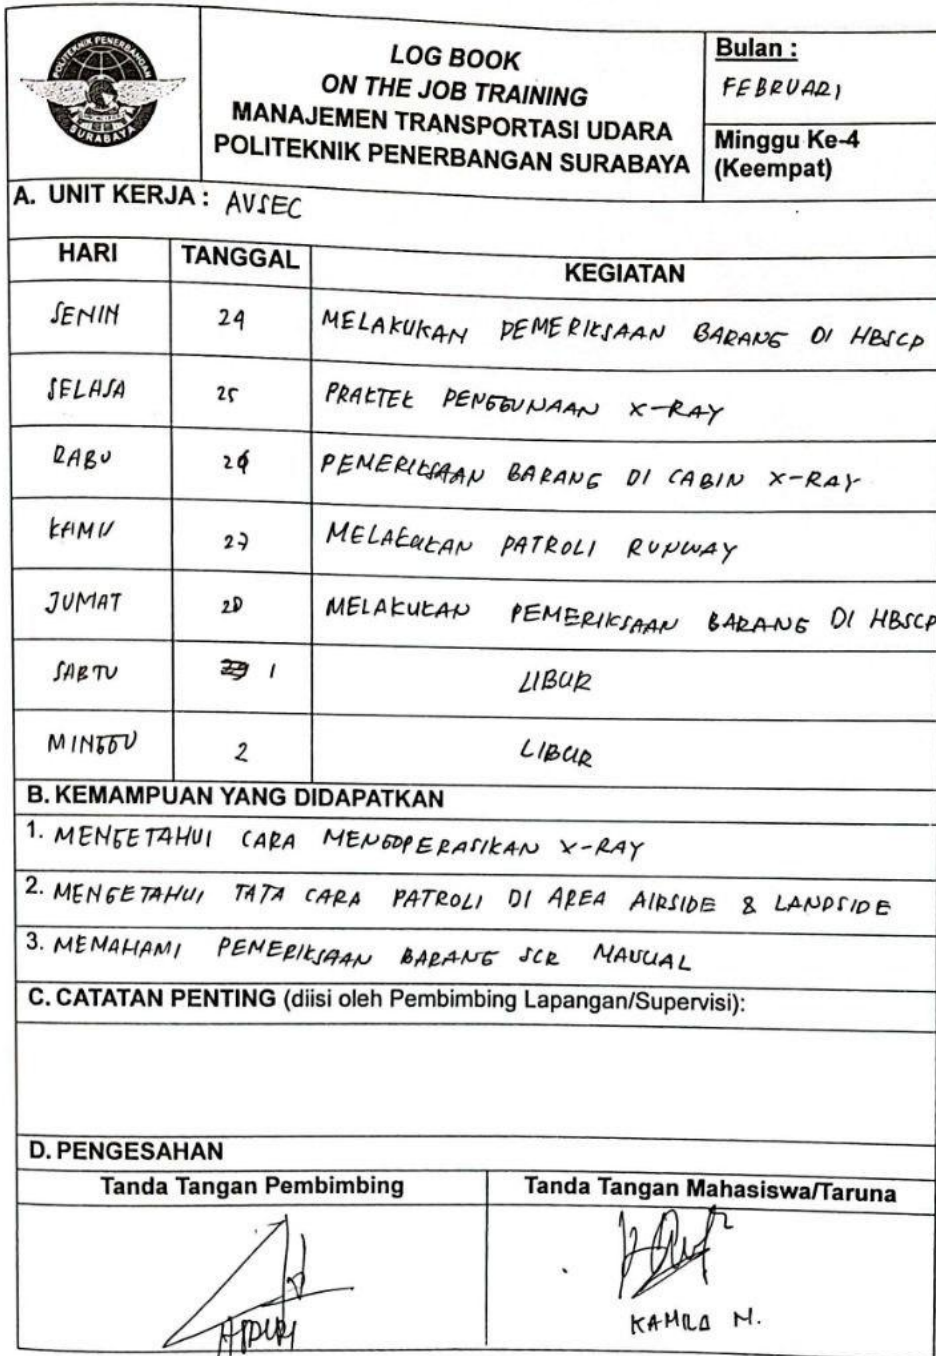 POLITEKNIK PENERBANGAN
SURABAYA
LOG BOOK
ON THE JOB TRAINING
MANAJEMEN TRANSPORTASI UDARA
POLITEKNIK PENERBANGAN SURABAYA
Bulan :
FEBRUARI
Minggu Ke-4
(Keempat)
A. UNIT KERJA : AVSEC
HARI TANGGAL KEGIATAN
SENIN 24 MELAKUKAN PEMERIKSAAN BARANG DI HBSCP
SELASA 25 PRAKTEK PENGGUNAAN X-RAY
RABU 26 PEMERIKSAAN BARANG DI CABIN X-RAY
KAMIS 27 MELAKUKAN PATROLI RUNWAY
JUMAT 28 MELAKUKAN PEMERIKSAAN BARANG DI HBSCP
SABTU 1 LIBUR
MINGGU 2 LIBUR
B. KEMAMPUAN YANG DIDAPATKAN
1. MENGETAHUI CARA MENGOPERASIKAN X-RAY
2. MENGETAHUI TATA CARA PATROLI DI AREA AIRSIDE & LANDSIDE
3. MEMAHAMI PEMERIKSAAN BARANG SCR MANUAL
C. CATATAN PENTING (diisi oleh Pembimbing Lapangan/Supervisi):
D. PENGESAHAN
Tanda Tangan Pembimbing Tanda Tangan Mahasiswa/Taruna
KAMILA M.